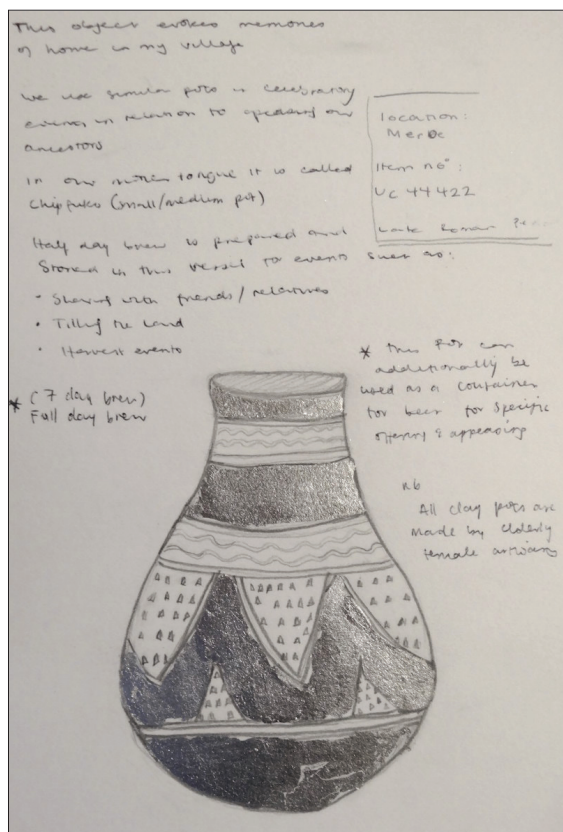 This object evokes memories
of home in my village
We use similar pots in celebratory
events in relation to appeasing our
ancestors
In our mother tongue it is called
Chipfuko (small/medium pot)
Half day brew is prepared and
Stored in this vessel for events such as:
• Sharing with friends / relatives
• Tilling the land
• Harvest events
location:
Meroe
Item no:
UC 44422
Late Roman
* (7 day brew)
Full day brew
* This Pot can
additionally be
used as a container
for beer for specific
offering & appeasing
nb
All clay pots are
made by elderly
female artisans